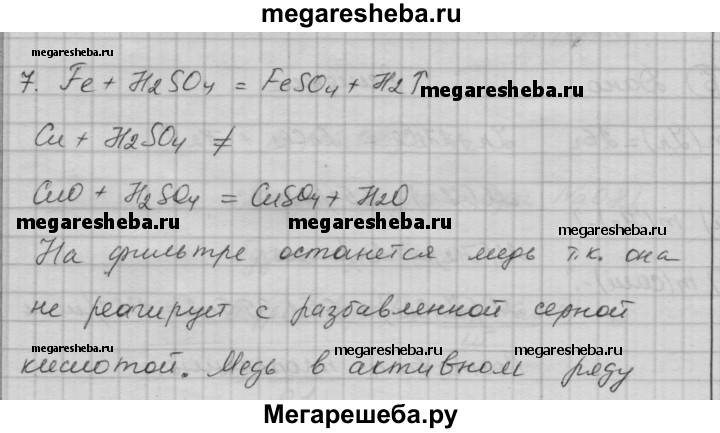 megaresheba.ru
megaresheba.ru
7. Fe + H2SO4 = FeSO4 + H2↑
megaresheba.ru
Cu + H2SO4 ≠
megaresheba.ru
CuO + H2SO4 = CuSO4 + H2O
megaresheba.ru megaresheba.ru megaresheba.ru
На фильтре останется медь т.к. она
не реагирует с разбавленной серной
megaresheba.ru megaresheba.ru megaresheba.ru
кислотой. Медь в активном ряду
Мегарешеба.ру